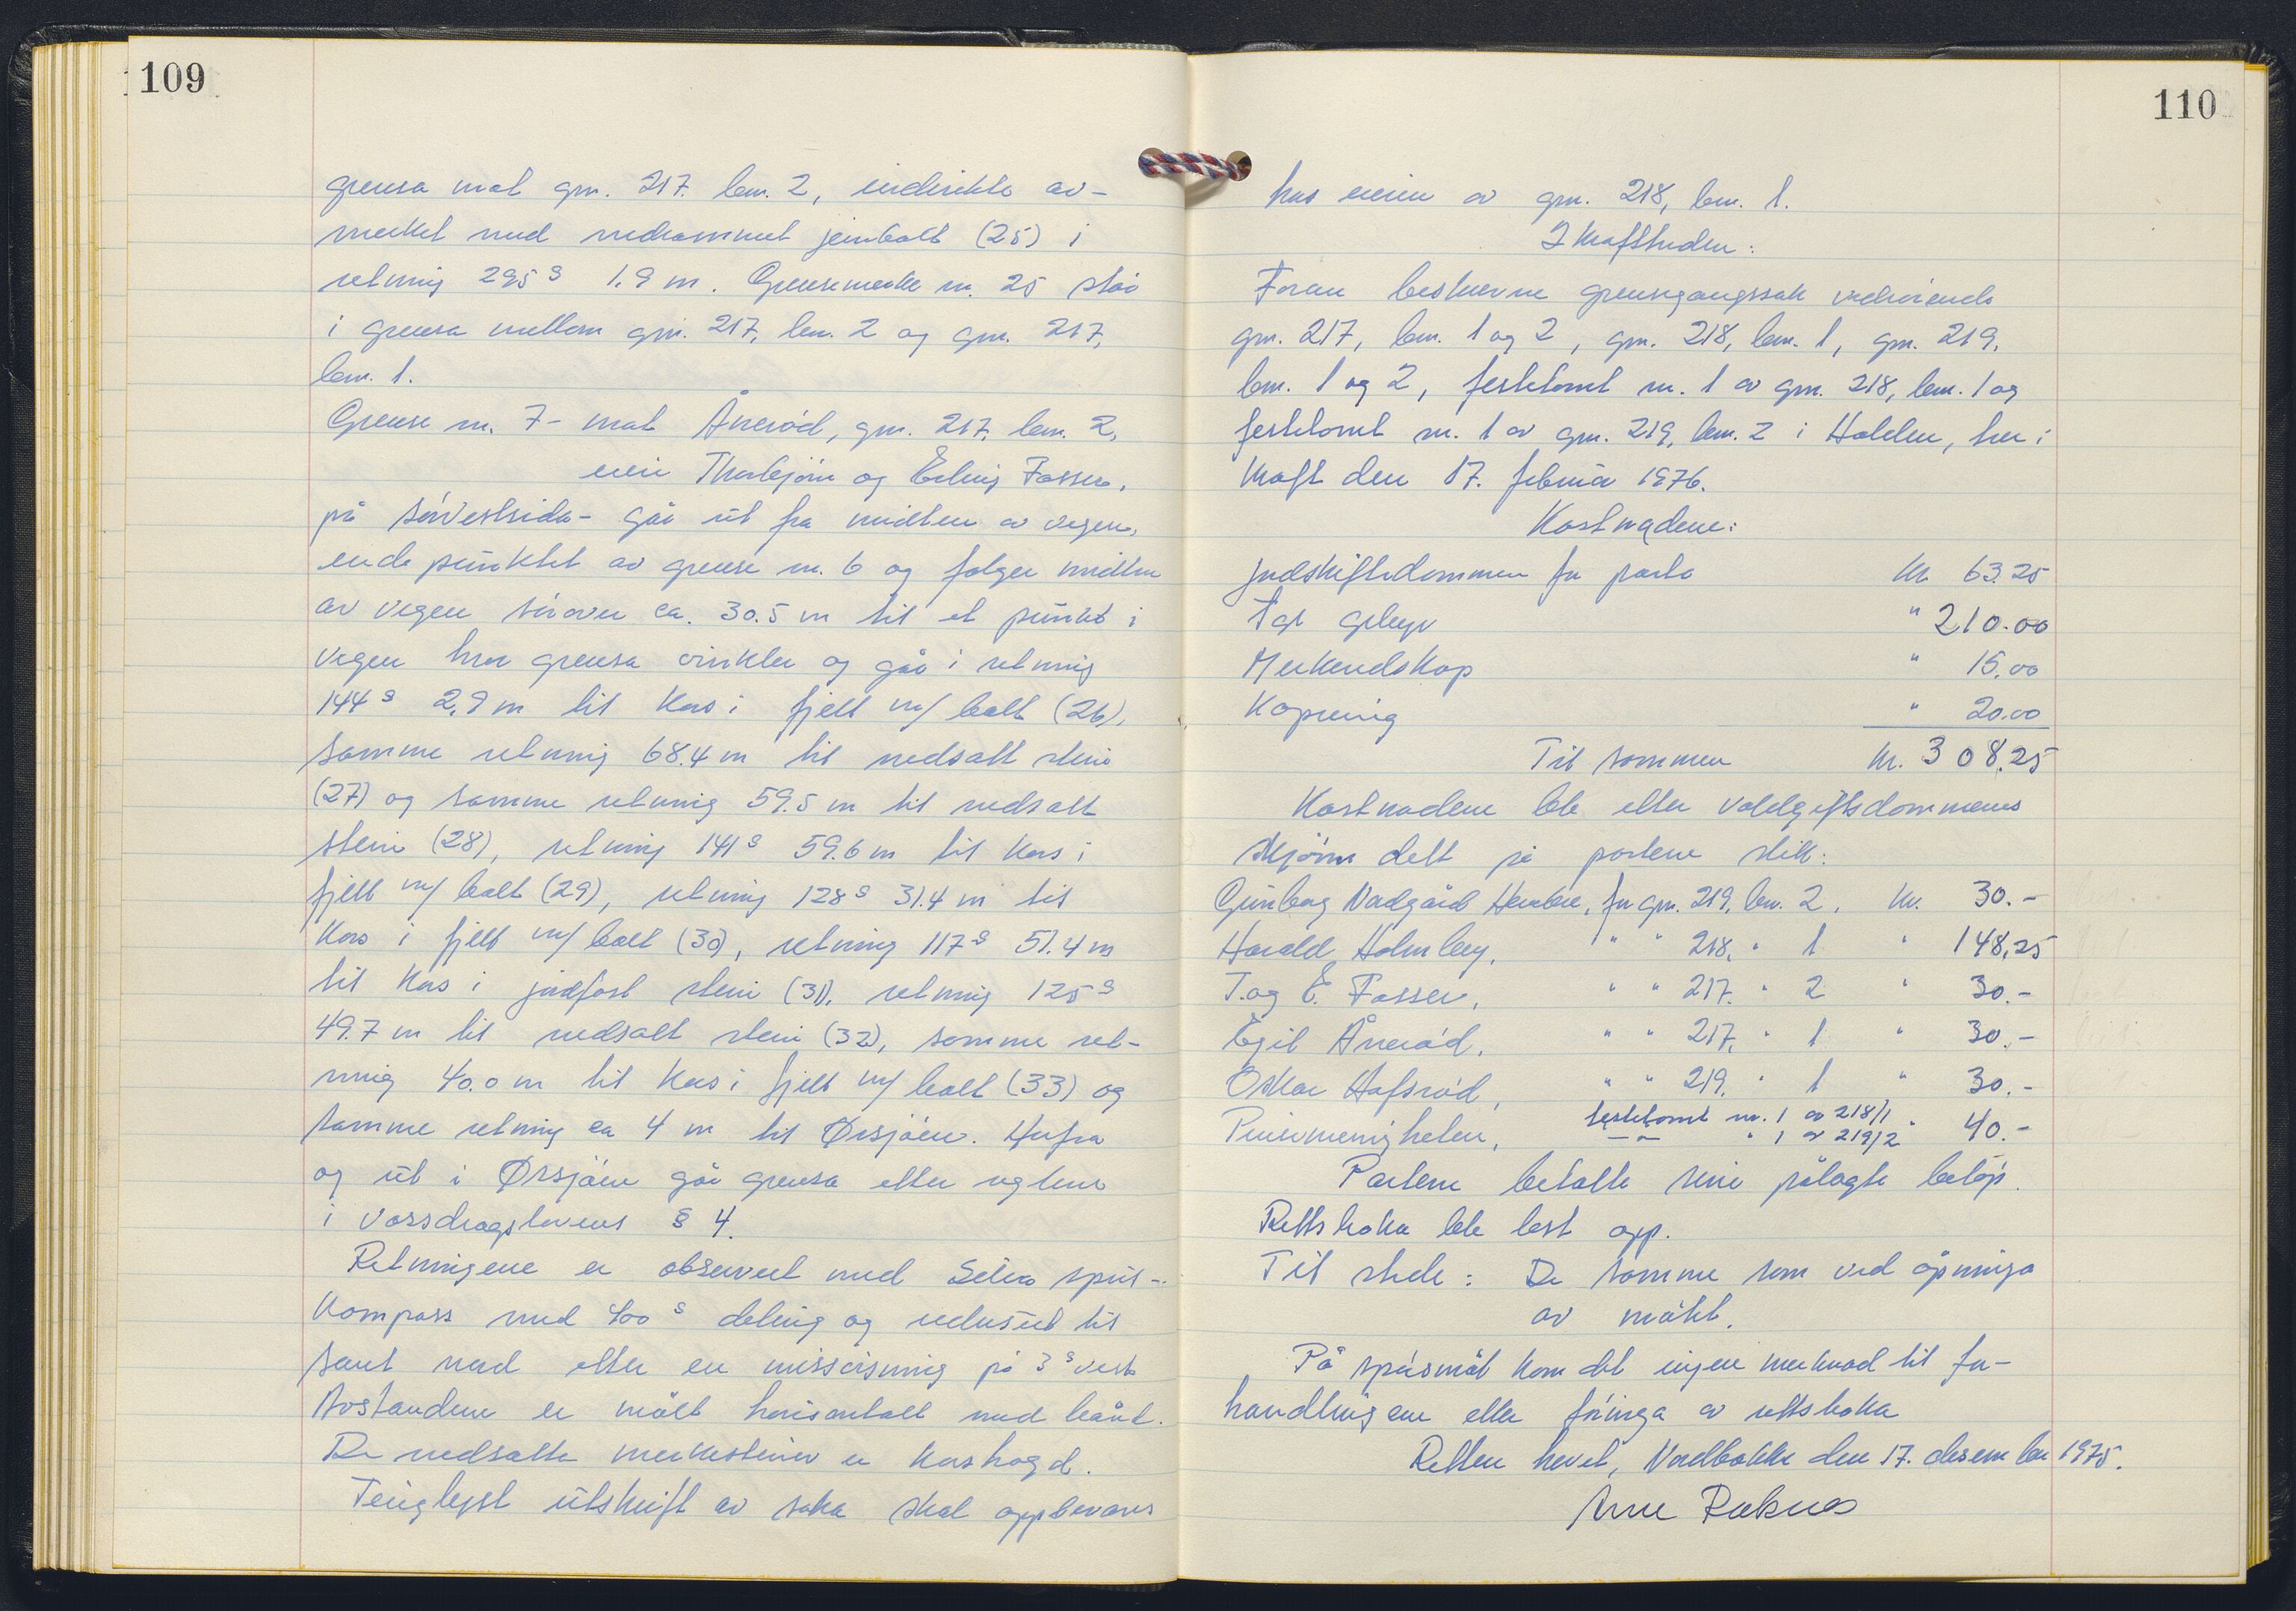 109
grensa mot gnr. 217. bnr. 2, indirekte av-
merket med nedrammet jernbolt (25) i
retning 295 g 1.9 m. Grensemerke nr. 25 står
i grensa mellom gnr. 217, bnr. 2 og gnr. 217,
bnr. 1.
Grense nr. 7 - mot Ånerød, gnr. 217, bnr. 2,
eier Thorbjørn og Erling Fosser,
på sørvestsida - går ut fra midten av vegen,
endepunktet av grense nr. 6 og følger midten
av vegen sørover ca. 30.5 m til et punkt i
vegen hvor grensa vinkler og går i retning
144 g 2.9 m til kors i fjell m/ bolt (26),
samme retning 68.4 m til nedsatt stein
(27) og samme retning 59.5 m til nedsatt
stein (28), retning 141 g 59.6 m til kors i
fjell m/ bolt (29), retning 128 g 31.4 m til
kors i fjell m/ bolt (30), retning 117 g 51.4 m
til kors i jordfast stein (31), retning 125 g
49.7 m til nedsatt stein (32), samme ret-
ning 40.0 m til kors i fjell m/ bolt (33) og
samme retning ca 4 m til Ørsjøen. Herfra
og ut i Ørsjøen går grensa etter reglene
i vassdragslovens § 4.
Retningene er observert med Silva speil-
kompass med 400 g deling og redusert til
sant nord etter en missvisning på 3 g vest.
Avstandene er målt horisontalt med bånd.
De nedsatte merkesteiner er korshogd.
Tinglyst utskrift av saka skal oppbevares
110
hos eieren av gnr. 218, bnr. 1.
Ikrafttreden:
Foran beskrevne grensegangssak vedrørende
gnr. 217, bnr. 1 og 2, gnr. 218, bnr. 1, gnr. 219,
bnr. 1 og 2, festetomt nr. 1 av gnr. 218, bnr. 1 og
festetomt nr. 1 av gnr. 219, bnr. 2 i Halden, trer i
kraft den 17. februar 1976.
Kostnadene:
Jordskiftedommen for parta kr. 63.25
Tgl. gebyr " 210.00
Merkeredskap " 15.00
Kopiering " 20.00
Til sammen kr. 308.25
Kostnadene ble etter voldgiftsdommernes
skjønn delt på partene slik:
Gunborg Nordgård Herrebrø, for gnr. 219, bnr. 2, kr. 30.-
Harald Holmberg, " " 218, " 1 " 148,25
T. og E. Fosser, " " 217. " 2 " 30.-
Egil Ånerød, " " 217, " 1 " 30.-
Oskar Hafsrød, " " 219. " 1 " 30.-
Pinsemenigheten, festetomt nr. 1 av 218/1
— " — " 1 av 219/2 " 40.-
Partene betalte sine pålagte beløp.
Rettsboka ble lest opp.
Til stede: De samme som ved åpninga
av møtet.
På spørsmål kom det ingen merknad til for-
handlingene eller føringa av rettsboka
Retten hevet, Nordbakke den 17. desember 1975.
Arne Reknes